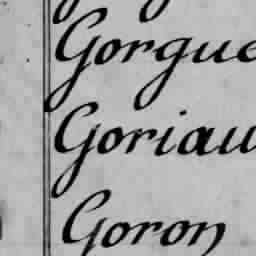 Gorgue
Goriau
Goron